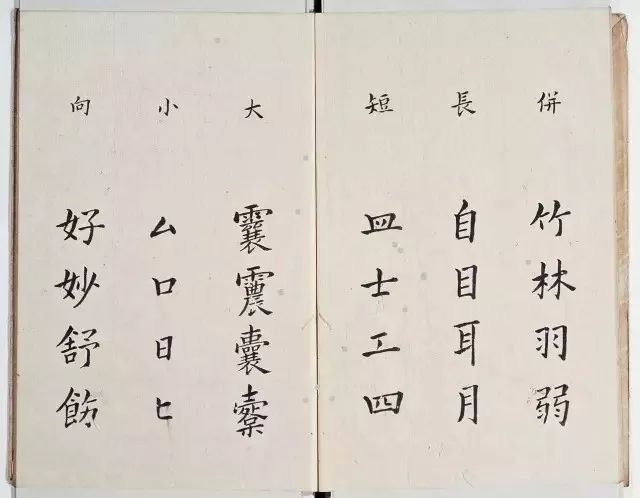 併
竹林羽弱
長
自目耳月
短
皿士工四
大
囊
小
厶口日匕
向
好妙舒